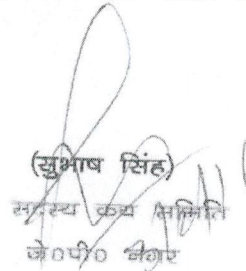 (सुभाष सिंह)
सदस्य क्रय समिति
जे०पी० नगर